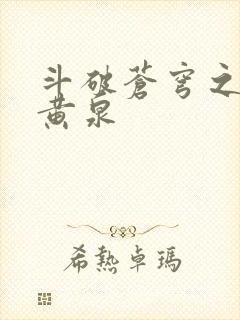 斗破蒼穹之
黄泉
希熱卓瑪